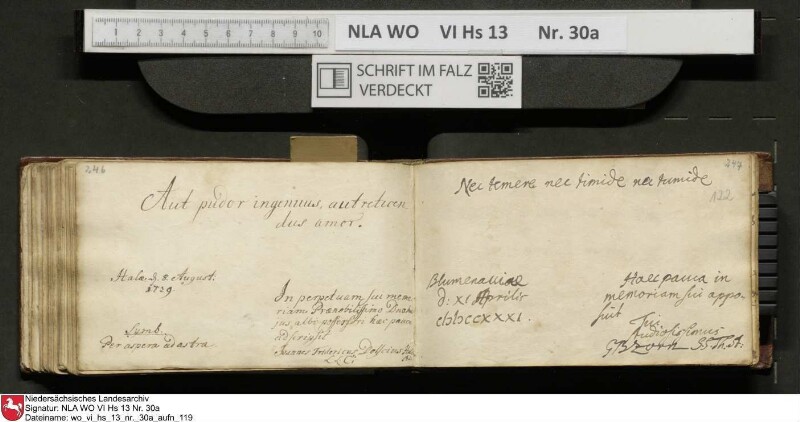 1 2 3 4 5 6 7 8 9 10
NLA WO VI Hs 13 Nr. 30a
SCHRIFT IM FALZ
VERDECKT
246
Aut pudor ingenuus, aut retinen
dus amor.
Halæ d. 8 August.
1729
Symb.
Per aspera ad astra
In perpetuam sui mem
oriam Prænobilissimo
hac pauca
adscripsit
Fridericus
247
122
Nec temere nec timide nec tumide
Blumenaviæ
d. XI Aprilis
cIɔIɔccxxxI.
Haec pauca in
memoriam sui appo
suit
Tui
Studiosissimus
Niedersächsisches Landesarchiv
Signatur: NLA WO VI Hs 13 Nr. 30a
Dateiname: wo_vi_hs_13_nr._30a_aufn_119